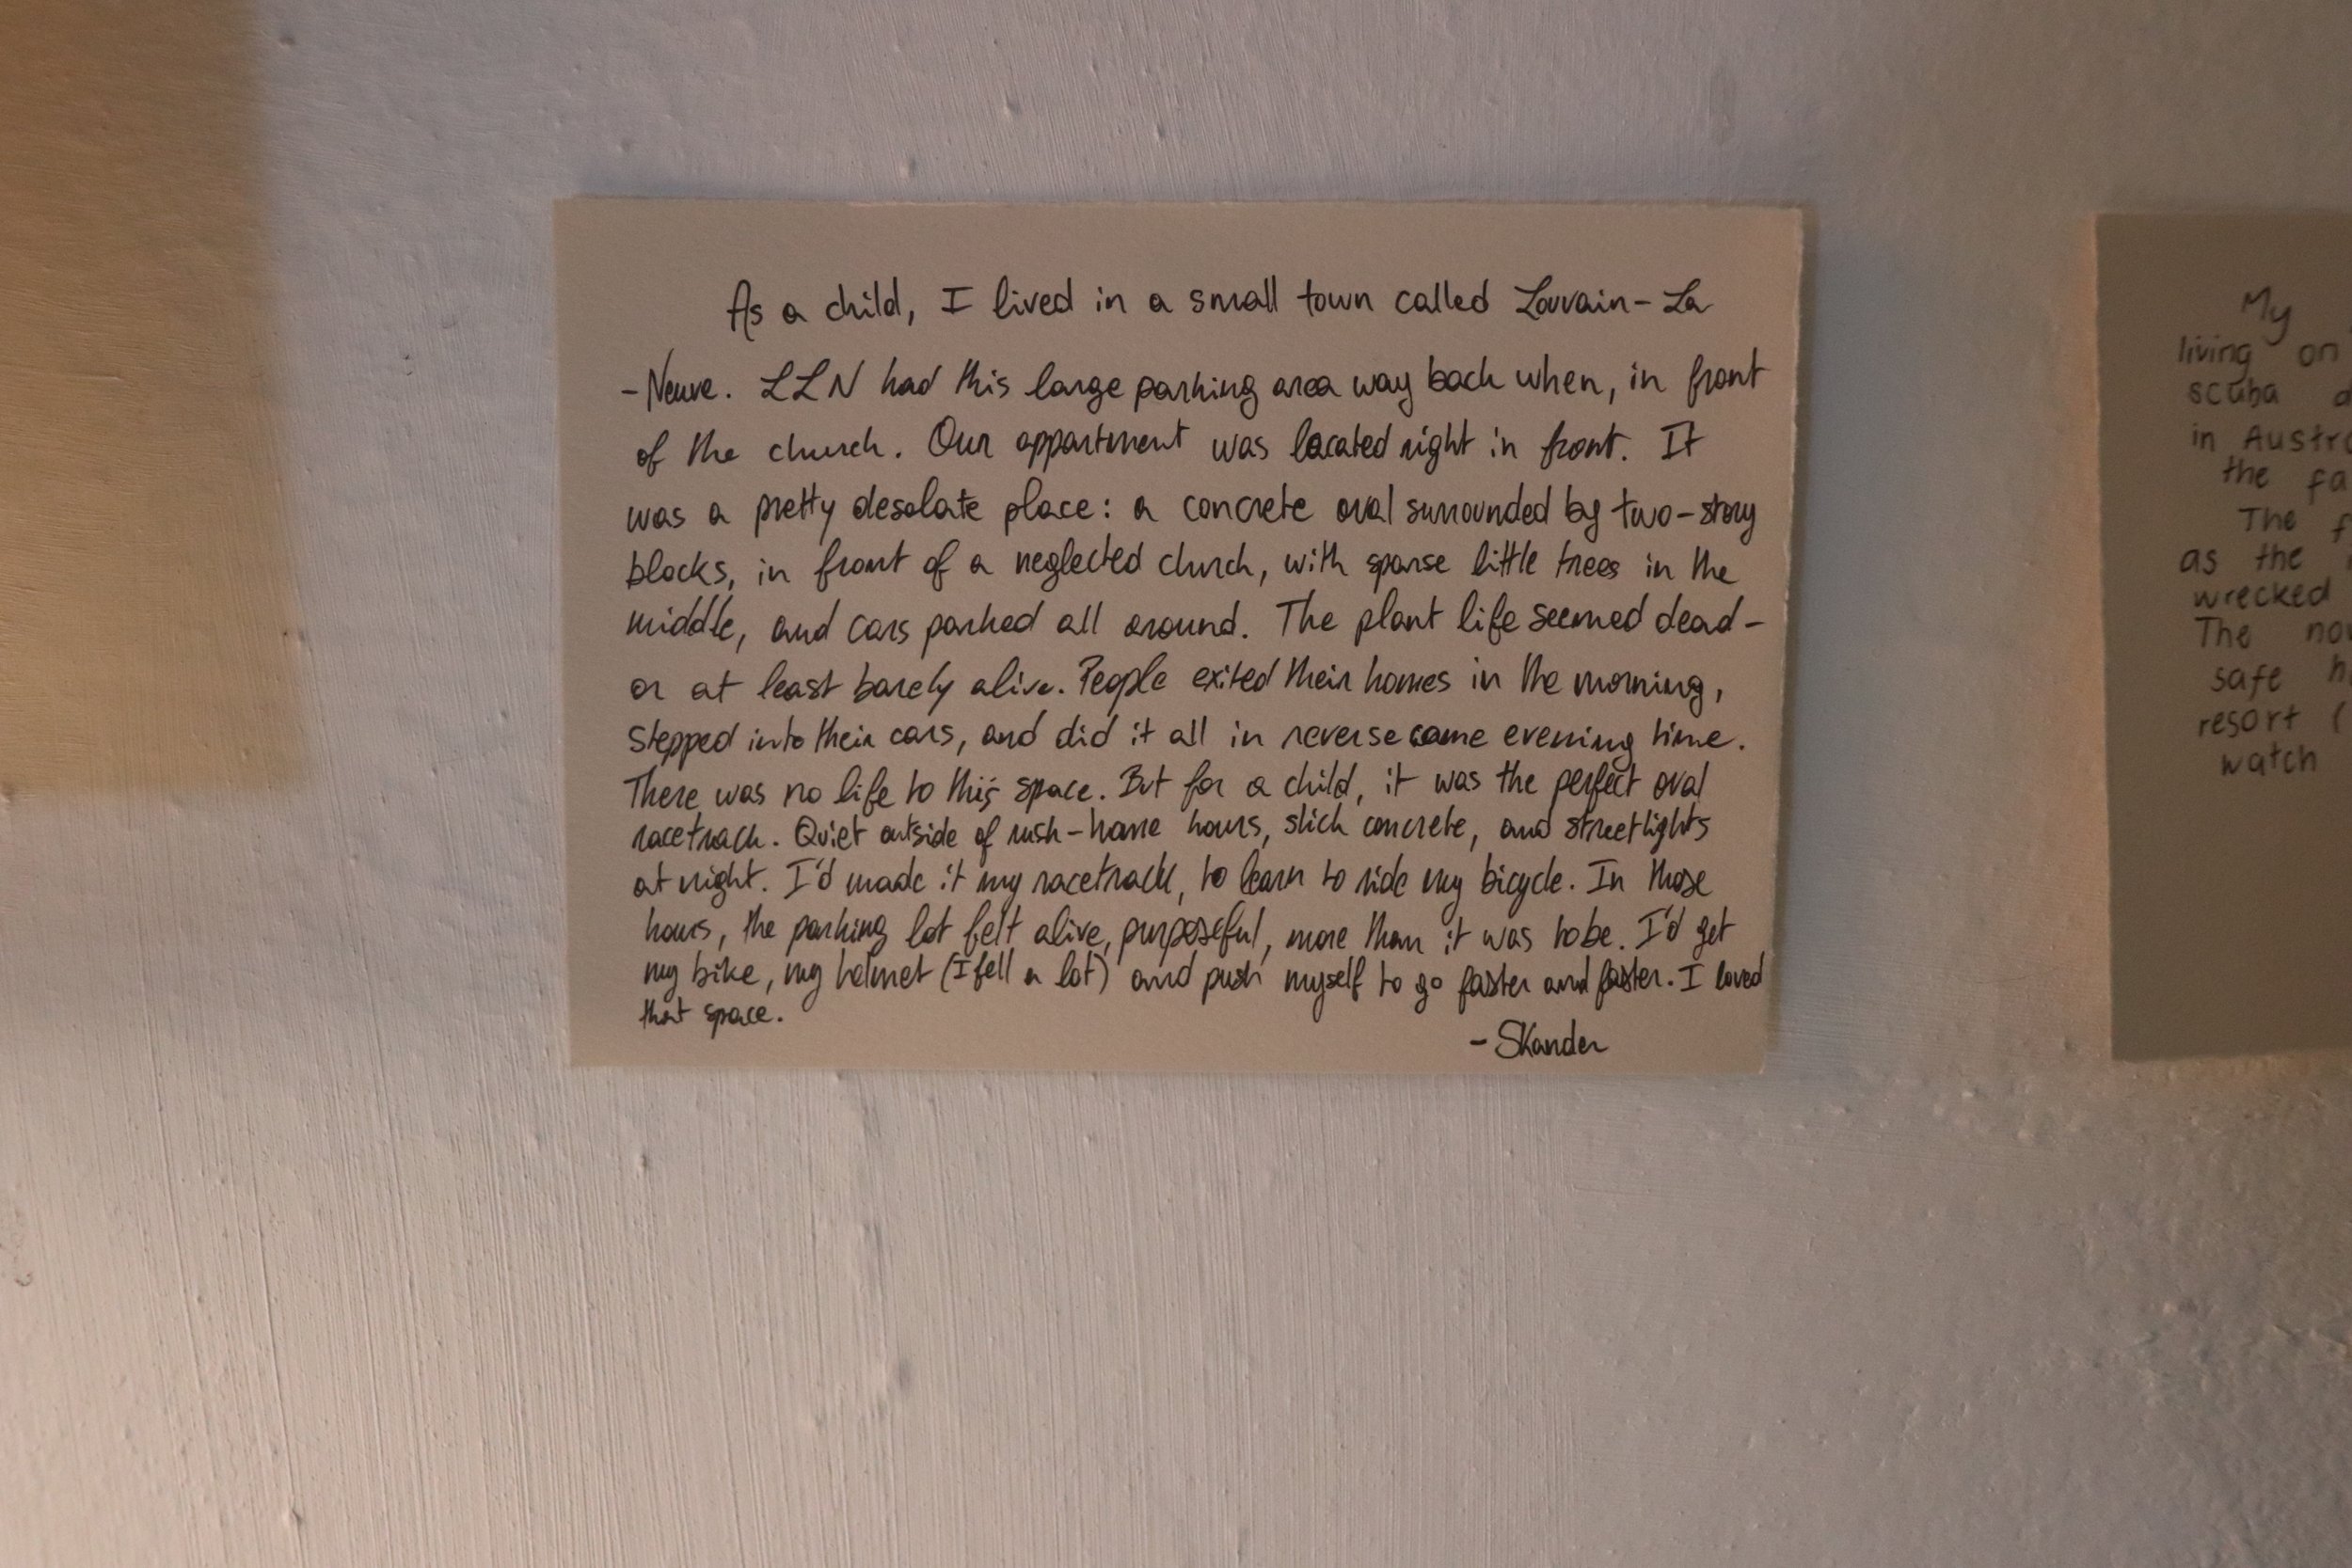 As a child, I lived in a small town called Louvain-La
-Neuve. LLN had this large parking area way back when, in front
of the church. Our appartment was located right in front. It
was a pretty desolate place: a concrete oval surrounded by two-story
blocks, in front of a neglected church, with sparse little trees in the
middle, and cars parked all around. The plant life seemed dead-
or at least barely alive. People exited their homes in the morning,
stepped into their cars, and did it all in reverse come evening time.
There was no life to this space. But for a child, it was the perfect oval
racetrack. Quiet outside of rush-home hours, slick concrete, and streetlights
at night. I'd made it my racetrack, to learn to ride my bicycle. In those
hours, the parking lot felt alive, purposeful, more than it was to be. I'd get
my bike, my helmet (I fell a lot) and push myself to go faster and faster. I loved
that space.
- Skander
My
living on
scuba
in
the
The
as the
wrecked
The
safe
resort (
watch